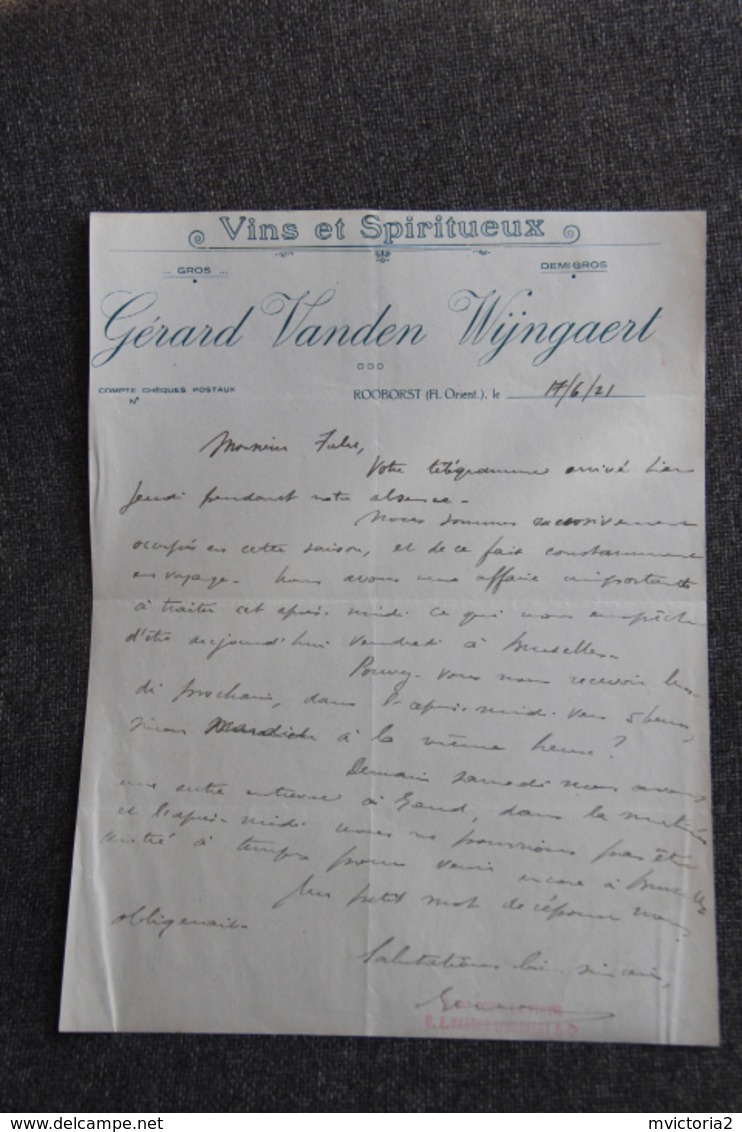 Vins et Spiritueux
GROS
DEMI GROS
Gérard Vanden Wijngaert
COMPTE CHÈQUES POSTAUX
N°
ROOBORST (Fl. Orient.), le 17/6/21
Monsieur Fabre,
Votre télégramme arrivé hier
jeudi pendant notre absence.
Nous sommes excessivement
occupés en cette saison, et de ce fait constamment
en voyage. Nous avons une affaire importante
à traiter cet après-midi ce qui nous empêche
d'être aujourd'hui vendredi à Bruxelles.
Pouvez-vous nous recevoir lun-
di prochain, dans l'après-midi vers 5 heures,
sinon à la même heure?
Demain samedi nous avons
une autre entrevue à Gand, dans la matinée
et l'après-midi nous ne pourrions pas être
à temps pour venir encore à Bruxelles
Un petit mot de réponse nous
obligerait.
Salutations bien sincères,
delcampe.net
mvictoria2